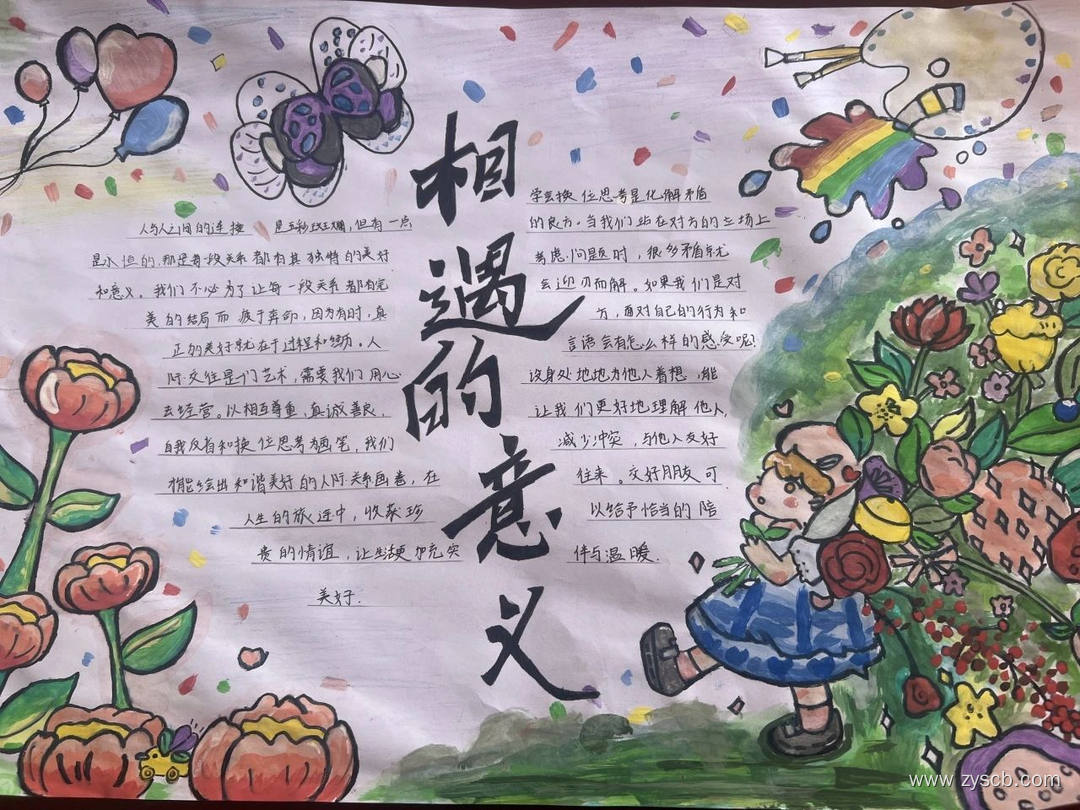 相遇的意义
人与人之间的连接 是五彩斑斓,但有一点
是永恒的,那是每一段关系都有其独特的美好
和意义。我们不必为了让每一段关系都有完
美的结局而疲于奔命,因为有时,真
正的美好就在于过程和经历。人
际交往是一门艺术,需要我们用心
去经营。以相互尊重,真诚善良,
自我反省和换位思考为画笔,我们
才能绘出和谐美好的人际关系画卷,在
人生的旅途中,收获珍
贵的情谊,让生活更加充实
美好.
学会换位思考是化解矛盾
的良方。当我们站在对方的立场上
考虑问题时,很多矛盾就
会迎刃而解。如果我们是对
方,面对自己的行为和
言语会有怎么样的感受呢?
设身处地地为他人着想,能
让我们更好地理解他人,
减少冲突,与他人友好
往来。交好朋友可
以给予恰当的陪
伴与温暖.
www.zyscb.com